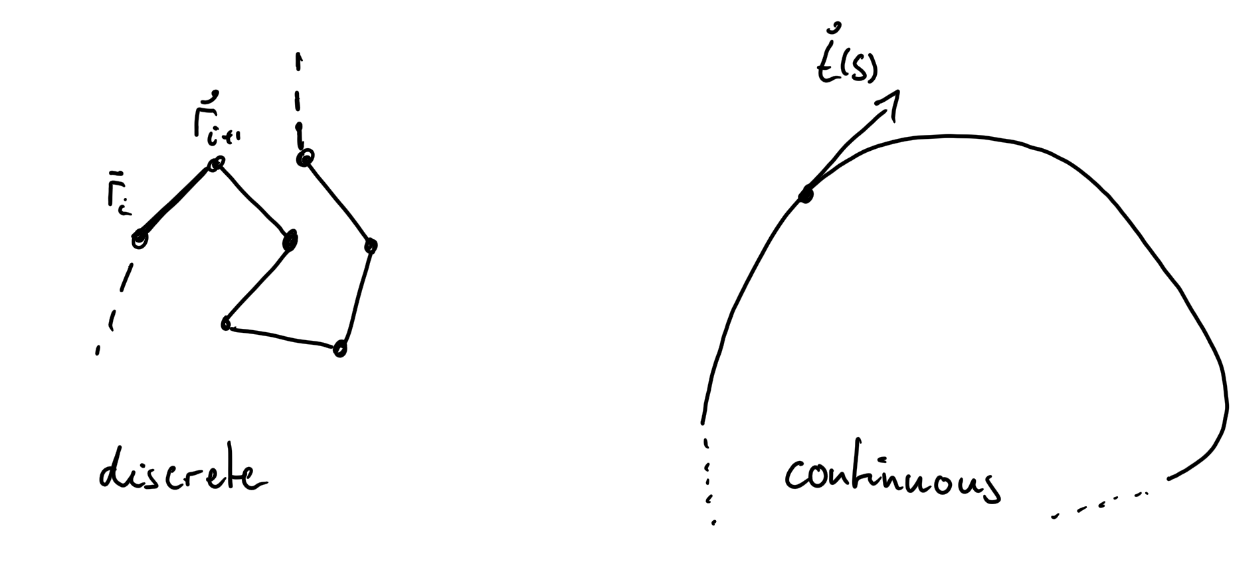 r⃗ᵢ₊₁
r⃗ᵢ
discrete
t⃗(s)
continuous